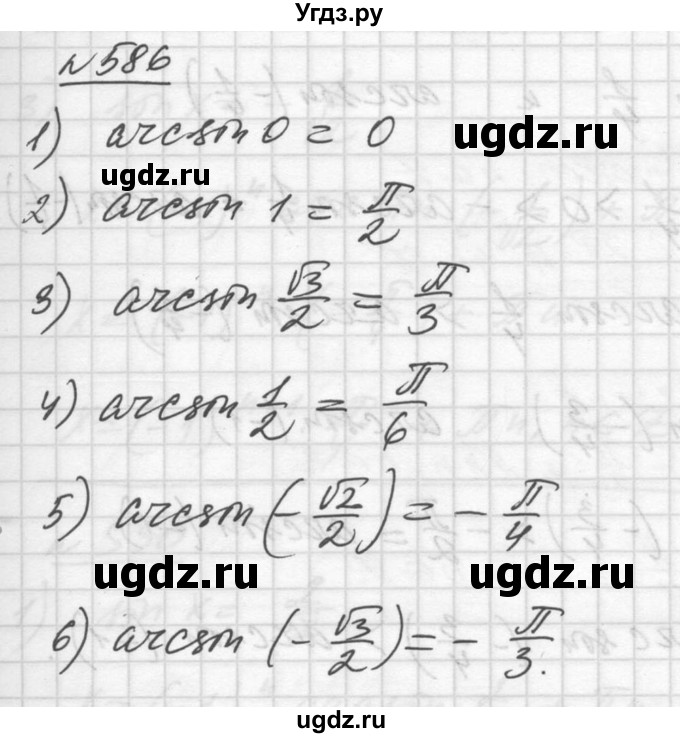 Угдз.ру
№586
1) arcsin 0 = 0
ugdz.ru
ugdz.ru
2) arcsin 1 = π/2
3) arcsin √3/2 = π/3
4) arcsin 1/2 = π/6
5) arcsin (-√2/2) = - π/4
ugdz.ru
ugdz.ru
6) arcsin (-√3/2) = - π/3.
ugdz.ru